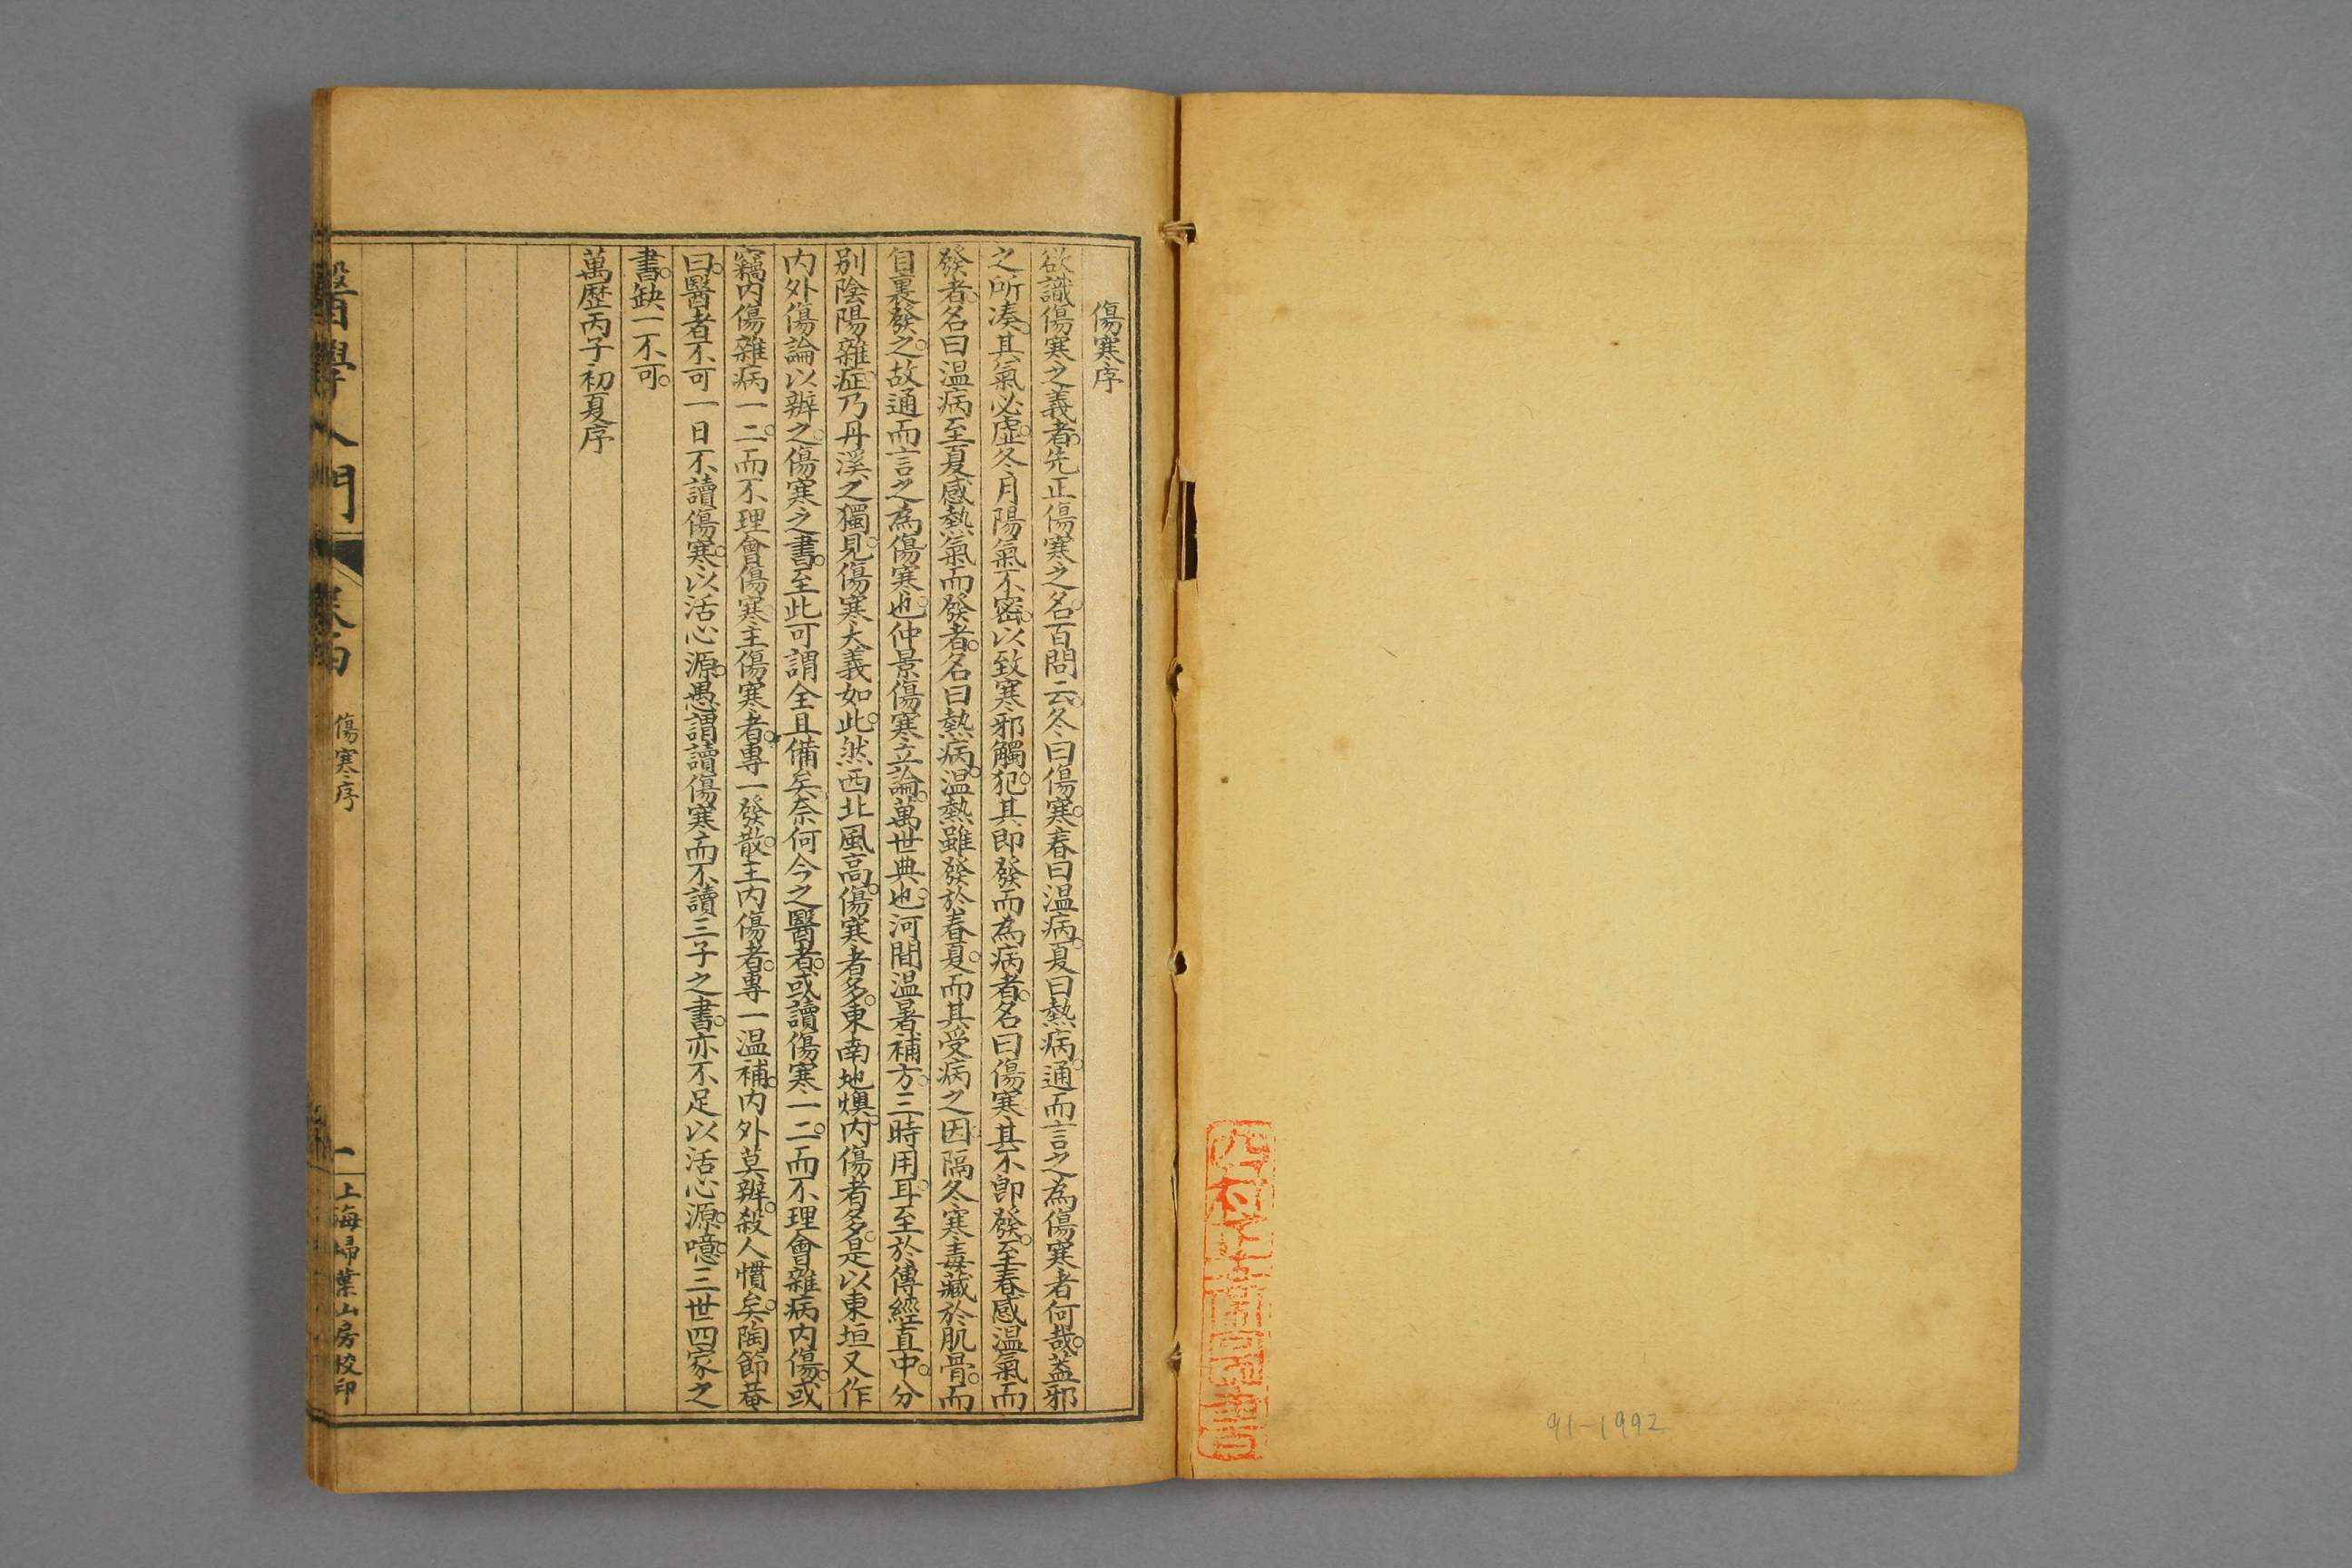 傷寒序
欲識傷寒之義者。先正傷寒之名。百問云。冬曰傷寒。春曰温病。夏曰熱病。通而言之為傷寒者何哉。蓋邪
之所湊。其氣必虛。冬月陽氣不密。以致寒邪觸犯。其即發而為病者。名曰傷寒。其不即發。至春感温氣而
發者。名曰温病。至夏感熱氣而發者。名曰熱病。温熱雖發於春夏。而其受病之因。隔冬寒毒藏於肌骨。而
自裏發之。故通而言之為傷寒也。仲景傷寒立論。萬世典也。河間温暑補方。三時用耳。至於傳經直中。分
別陰陽雜症。乃丹溪之獨見。傷寒大義如此。然西北風高。傷寒者多。東南地燠。内傷者多。是以東垣又作
内外傷論以辨之。傷寒之書。至此可謂全且備矣。奈何今之醫者。或讀傷寒一二。而不理會雜病内傷。或
竊内傷雜病一二。而不理會傷寒。主傷寒者。專一發散。主内傷者。專一温補。内外莫辨。殺人慣矣。陶節菴
曰。醫者不可一日不讀傷寒。以活心源。愚謂讀傷寒而不讀三子之書。亦不足以活心源。噫。三世四家之
書。缺一不可。
萬歷丙子初夏序
醫學入門
傷寒序
一
上海掃葉山房校印
91-1992